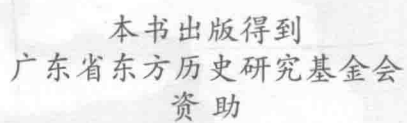 本书出版得到
广东省东方历史研究基金会
资助